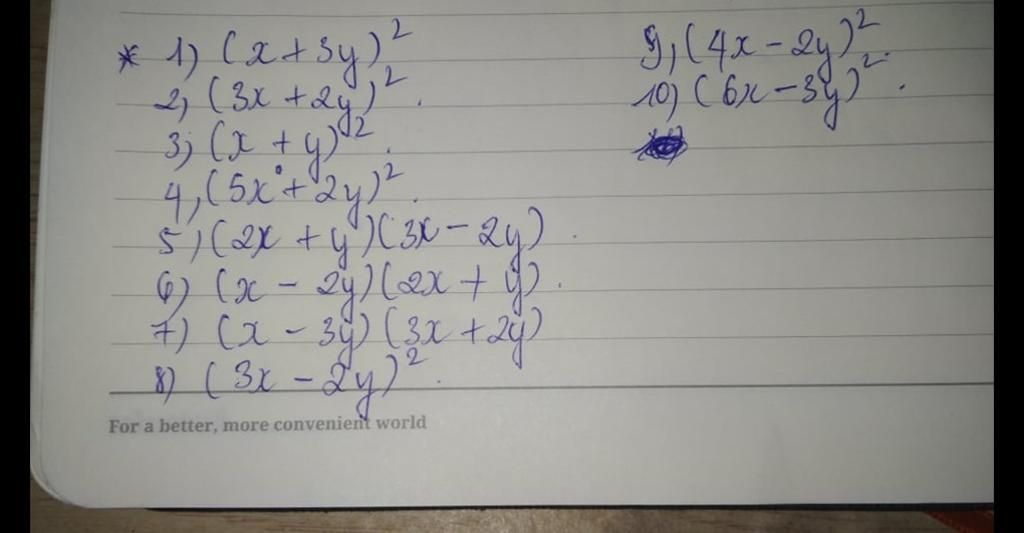 * 1) (x + 3y)²
2, (3x + 2y)².
3, (x + y)².
4, (5x + 2y)².
5) (2x + y)(3x - 2y).
6) (x - 2y)(2x + y).
7) (x - 3y)(3x + 2y)
8) (3x - 2y)².
For a better, more convenient world
9, (4x - 2y)².
10) (6x - 3y)².